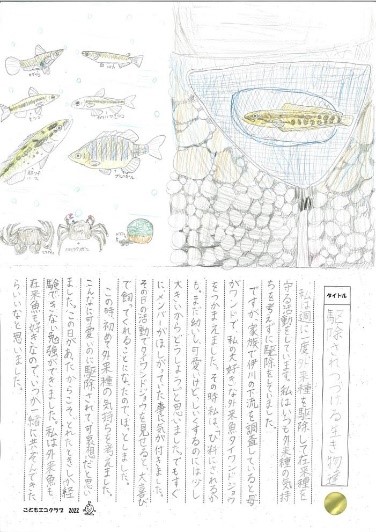 タイトル
駆除されつづける生き物達
私は週に一度、外来種を駆除して在来種を
守る活動をしています。私はいつも外来種の気持
ちを考えずに駆除をしていました。
ですが、家族で伊川の下流を調査していると母
がワンドで、私の大好きな外来魚タイワンドジョウ
をつかまえました。その時私は、び料にされるか
も。まだ幼いし可愛いけど。しいくするのには少し
大きいから、どうしようと思いました。でもすぐ
に、メンバーがほしがっていた事に気が付きました。
その日の活動でタイワンドジョウを見せると、大喜び
で飼ってくれることになったので、ほっとしました。
この時、初めて外来種の気持ちを考えました。
こんなに可愛いのに駆除されて可哀想だと思い
ました。この日があったからこそ、とれたときしか経
験できない勉強ができました。私は外来魚も
在来魚も好きなので、いつか一緒に共ぞんできた
らいいなと思いました。
こどもエコクラブ 2022